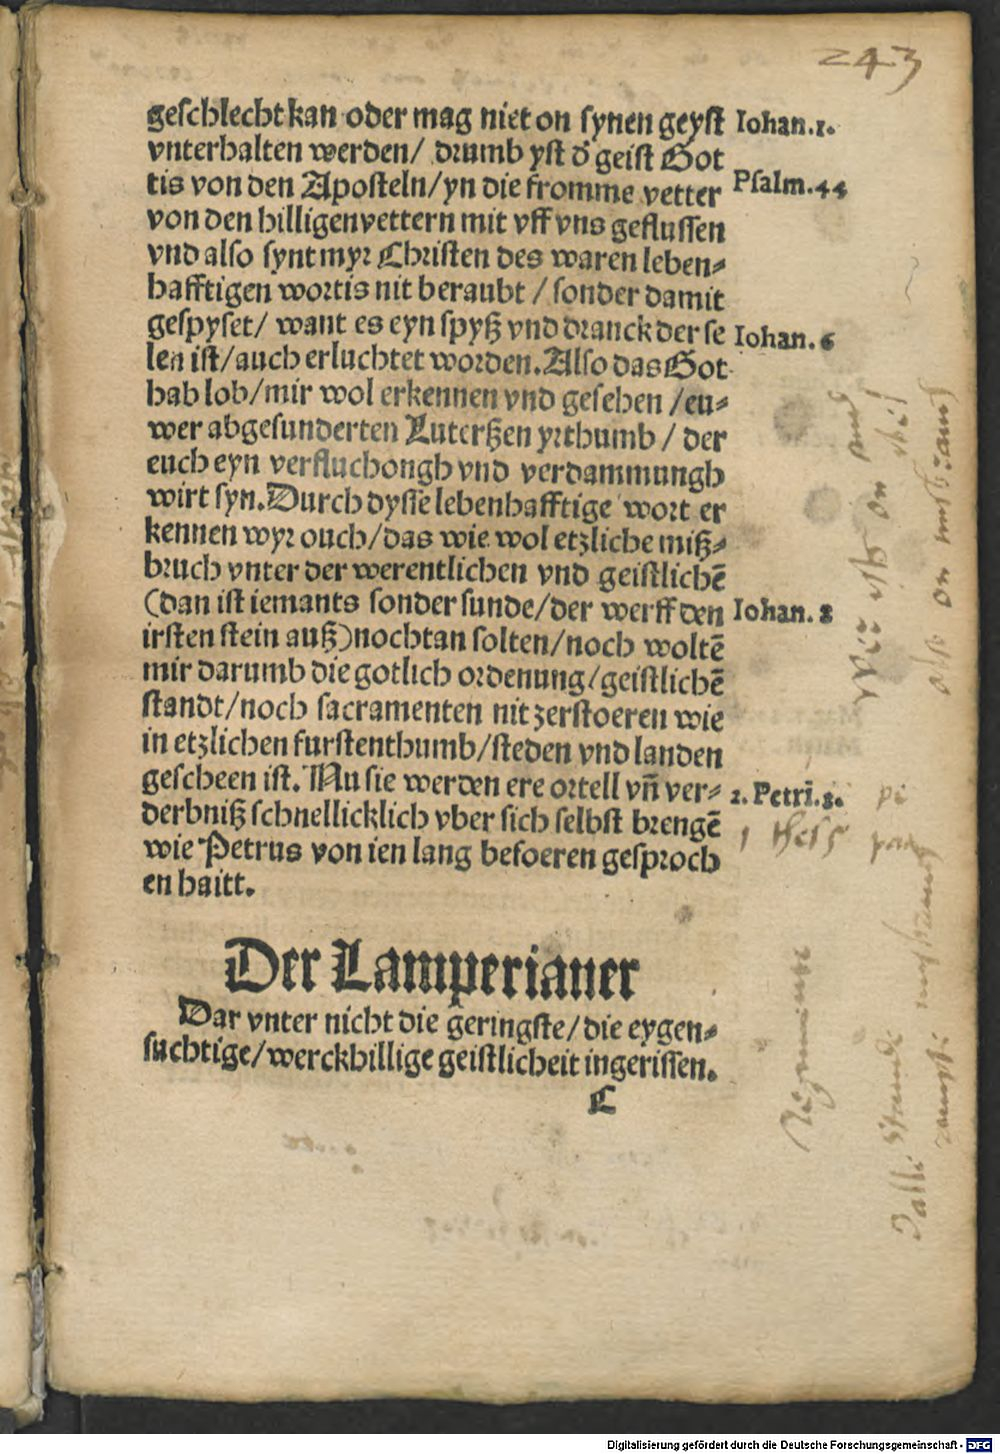 243
geschlecht kan oder mag niet on synen geyst Iohan.1.
vnterhalten werden/ drumb yst d̕ geist Got
tis von den Aposteln/yn die fromme vetter Psalm.44
von den hilligenvettern mit vff vns geflussen
vnd also synt myr Christen des waren leben⸗
hafftigen wortis nit beraubt / sonder damit
gespyset/ want es eyn spyß vnd dranck der se Iohan. 6
len ist/auch erluchtet worden. Also das Got
hab lob/mir wol erkennen vnd gesehen /eu⸗
wer abgesunderten Luterßen yrthumb / der
euch eyn verfluchongh vnd verdammungh
wirt syn. Durch dysse lebenhafftige wort er
kennen wyr ouch/das wie wol etzliche miß⸗
bruch vnter der werentlichen vnd geistlichē
(dan ist iemants sonder sunde/der werff den Iohan. 8
irsten stein auß) nochtan solten/noch woltē
mir darumb die gotlich ordenung/geistlichē
standt/noch sacramenten nit zerstoeren wie
in etzlichen furstenthumb/steden vnd landen
gescheen ist. Nu sie werden ere ortell vn̄ ver⸗ 2. Petri.3.
derbniß schnellicklich vber sich selbst brengē 1 thess 5
wie Petrus von ien lang befoeren gesproch
en haitt.
Der Lamperianer
Dar vnter nicht die geringste/die eygen⸗
suchtige/werckhillige geistlicheit ingerissen.
C
Digitalisierung gefördert durch die Deutsche Forschungsgemeinschaft - DFG